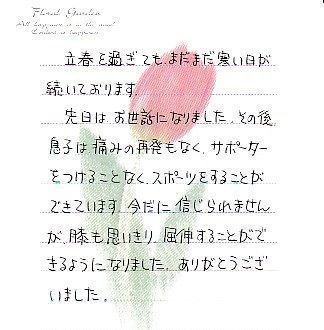 Floral Garden
立春を過ぎても、まだまだ寒い日が
続いております。
先日は、お世話になりました。その後、
息子は痛みの再発もなく、サポーター
をつけることなく、スポーツをすることが
できています。今だに、信じられません
が、膝も思いきり、屈伸することがで
きるようになりました。ありがとうござ
いました。